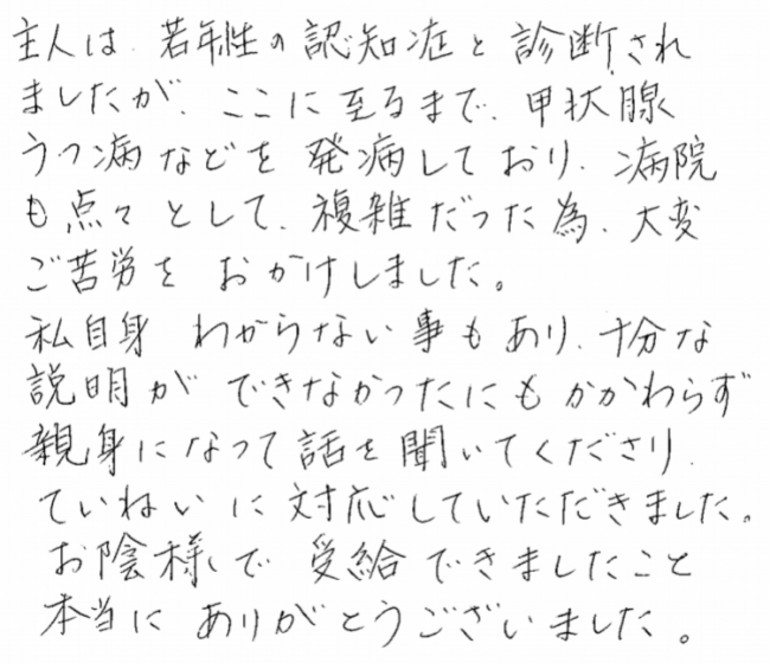 主人は、若年性の認知症と診断され
ましたが、ここに至るまで、甲状腺
うつ病などを発病しており、病院
も点々として、複雑だった為、大変
ご苦労をおかけしました。
私自身わからない事もあり、十分な
説明ができなかったにもかかわらず
親身になって話を聞いてくださり、
ていねいに対応していただきました。
お陰様で受給できましたこと
本当にありがとうございました。